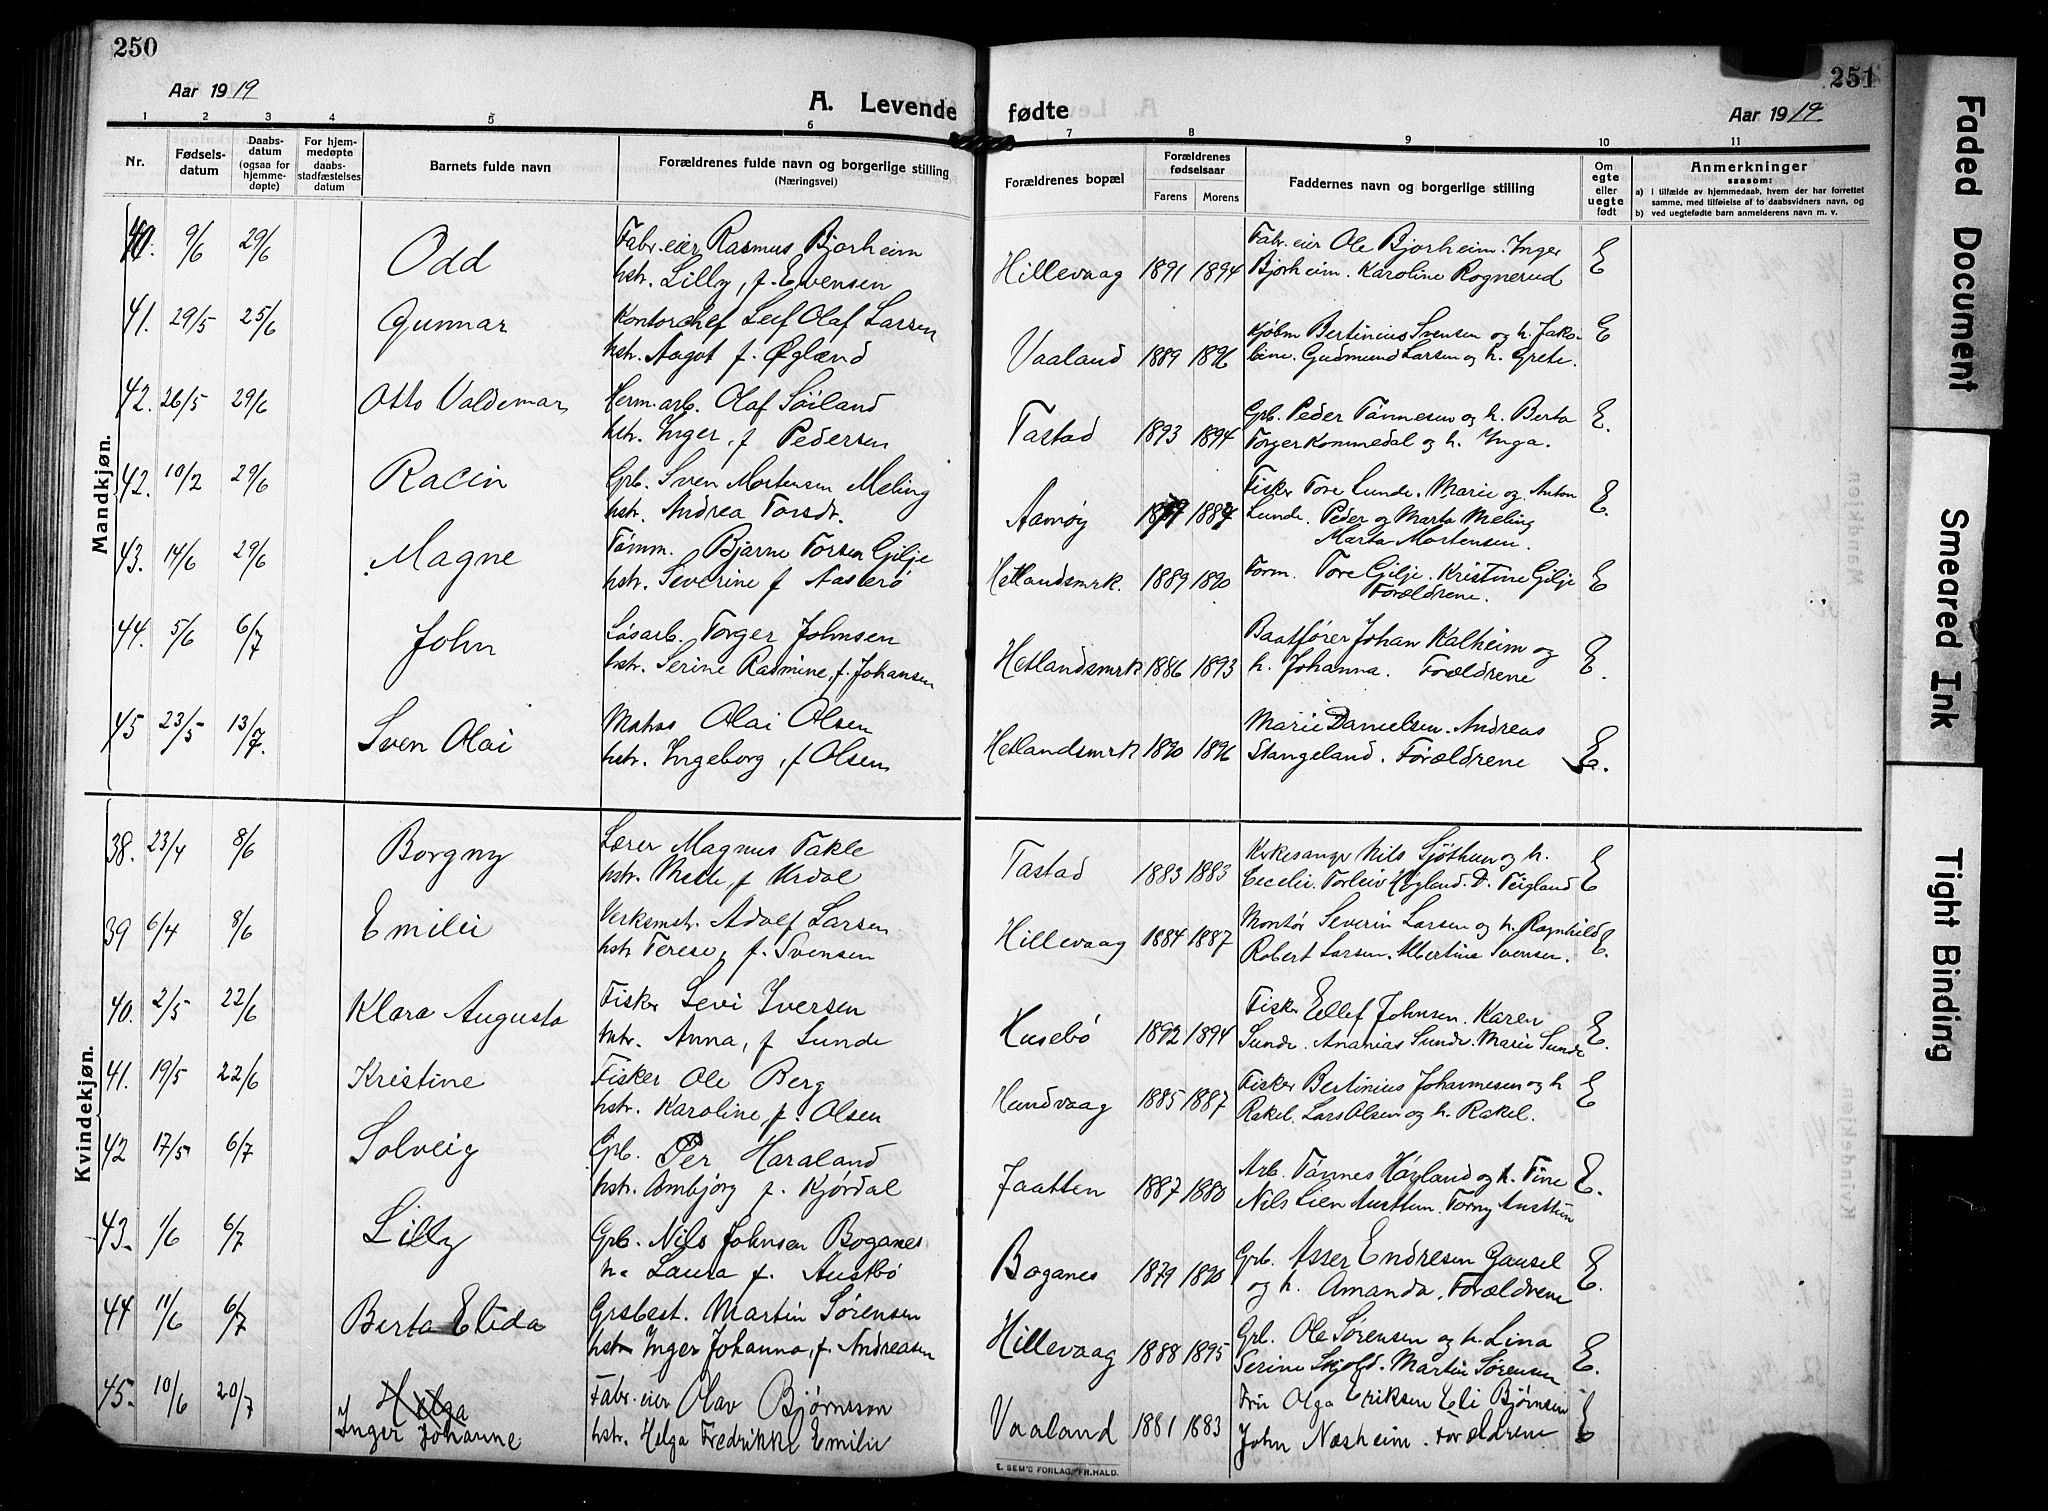 250
Aar 1919
A. Levende
1 2 3 4 5 6
Nr.
Fødsels-
datum
Daabs-
datum
(ogsaa for
hjemme-
døpte)
For hjem-
medøpte
daabs-
stadfæstelses
datum
Barnets fulde navn
Forældrenes fulde navn og borgerlige stilling
(Næringsvei)
Mandkjøn.
40. 9/6 29/6 Odd Fabr.eier Rasmus Bjorheim
hstr. Lilly, f. Evensen
41. 29/5 25/6 Gunnar Kontorchef Leif Olaf Larsen
hstr. Aagot f. Øglænd
42. 26/5 29/6 Otto Valdemar Herm.arb. Olaf Söiland
hstr. Inger, f Pedersen
42. 10/2 29/6 Racin Gpb. Sven Mortensen Meling
hstr. Andrea Torsdr.
43. 14/6 29/6 Magne Tömm. Bjarne Torsen Gilje
hstr. Severine f Aasterö
44. 5/6 6/7 John Løsarb. Torger Johnsen
hstr. Serine Rasmine, f. Johansen
45 23/5 13/7. Sven Olai Matros Olai Olsen
hstr. Ingeborg, f Olsen
Kvindekjøn.
38. 23/4 8/6 Borgny Lærer Magnus Takle
hstr. Mette f Urdal
39 6/4 8/6 Emilie Verksmstr. Adolf Larsen
hstr Terese, f. Svensen
40. 2/5 22/6 Klara Augusta Fisker Levi Iversen
hstr. Anna, f Sunde
41. 19/5 22/6 Kristine Fisker Ole Berg
hstr. Karoline, f. Olsen
42 17/5 6/7 Solveig Gpb. Per Haraland
hstr. Ambjörg f. Kjördal
43. 1/6 6/7 Lilly Gpb. Nils Johnsen Boganes
h. Laura f. Austbø
44 11/6 6/7 Berta Elida Grsbest. Martin Sørensen
hstr Inger Johanna, f. Andreasen
45. 10/6 20/7 Helga Fabr.eier Olav Bjørnsson
Inger Johanne hstr. Helga Fredrikke Emilie
251
Aar 1919
fødte
7 8 9 10 11
Forældrenes bopæl
Forældrenes
fødselsaar
Farens Morens
Faddernes navn og borgerlige stilling
Om
egte
eller
uegte
født
Anmerkninger
saasom:
a) i tilfælde av hjemmedaab, hvem der har forrettet
samme, med tilføielse av to daabsvidners navn, og
b) ved uegtefødte barn anmelderens navn m. v.
Hillevaag 1891 1894 Fabr.eier Ole Bjorheim. Inger E
Bjorheim. Karoline Rognerud
Vaaland 1889 1896 Kjøbm Bertinius Svensen og h. Jako- E
bine. Gudmund Larsen og h. Grete.
Tastad 1893 1894 Gpb. Peder Tönnesen og h. Berta E.
Torger Kommedal og h. Inga.
Aamøy 1879 1884 Fisker Tore Lunde. Marie og Anton E.
Lunde. Peder og Marta Meling
Marta Mortensen.
Hetlandsmrk. 1889 1890 Form. Tore Gilje. Kristine Gilje E
Forældrene.
Hetlandsmrk 1886 1893 Baatfører Johan Kalheim og E.
h. Johanna. Forældrene
Hetlandsmrk 1890 1896 Marie Danielsen. Andreas
Stangeland. Forældrene E.
Tastad 1883 1883 Kirkesanger Nils Sjøthun og h. E
Cecelie. Torleiv Høgland. D. Teigland
Hillevaag 1884 1887 Montør Severin Larsen og h. Ragnhild E.
Robert Larsen. Albertine Svensen.
Husebö 1892 1894 Fisker Ellef Johnsen. Karen E.
Sunde. Ananias Sunde. Marie Sunde
Hundvaag 1885 1887 Fisker Bertinius Johannesen og h E
Rakel. Lars Olsen og h. Rakel.
Jaatten 1887 1888 Arb. Tönnes Høyland og h. Tine E.
Nils Lien Austtun. Torny Austtun
Boganes 1879 1890 Gpb. Asser Endresen Gausel E.
og h. Amanda. Forældrene
Hillevaag 1888 1895 Gpb. Ole Sørensen og h. Lina E.
Serine Skjold. Martin Sørensen
Vaaland 1881 1883 Fru Olga Eriksen Eli Bjørnsen E
John Næsheim. Forældrene
E. SEM'S FORLAG, FR.HALD.
Faded Document
Smeared Ink
Tight Binding